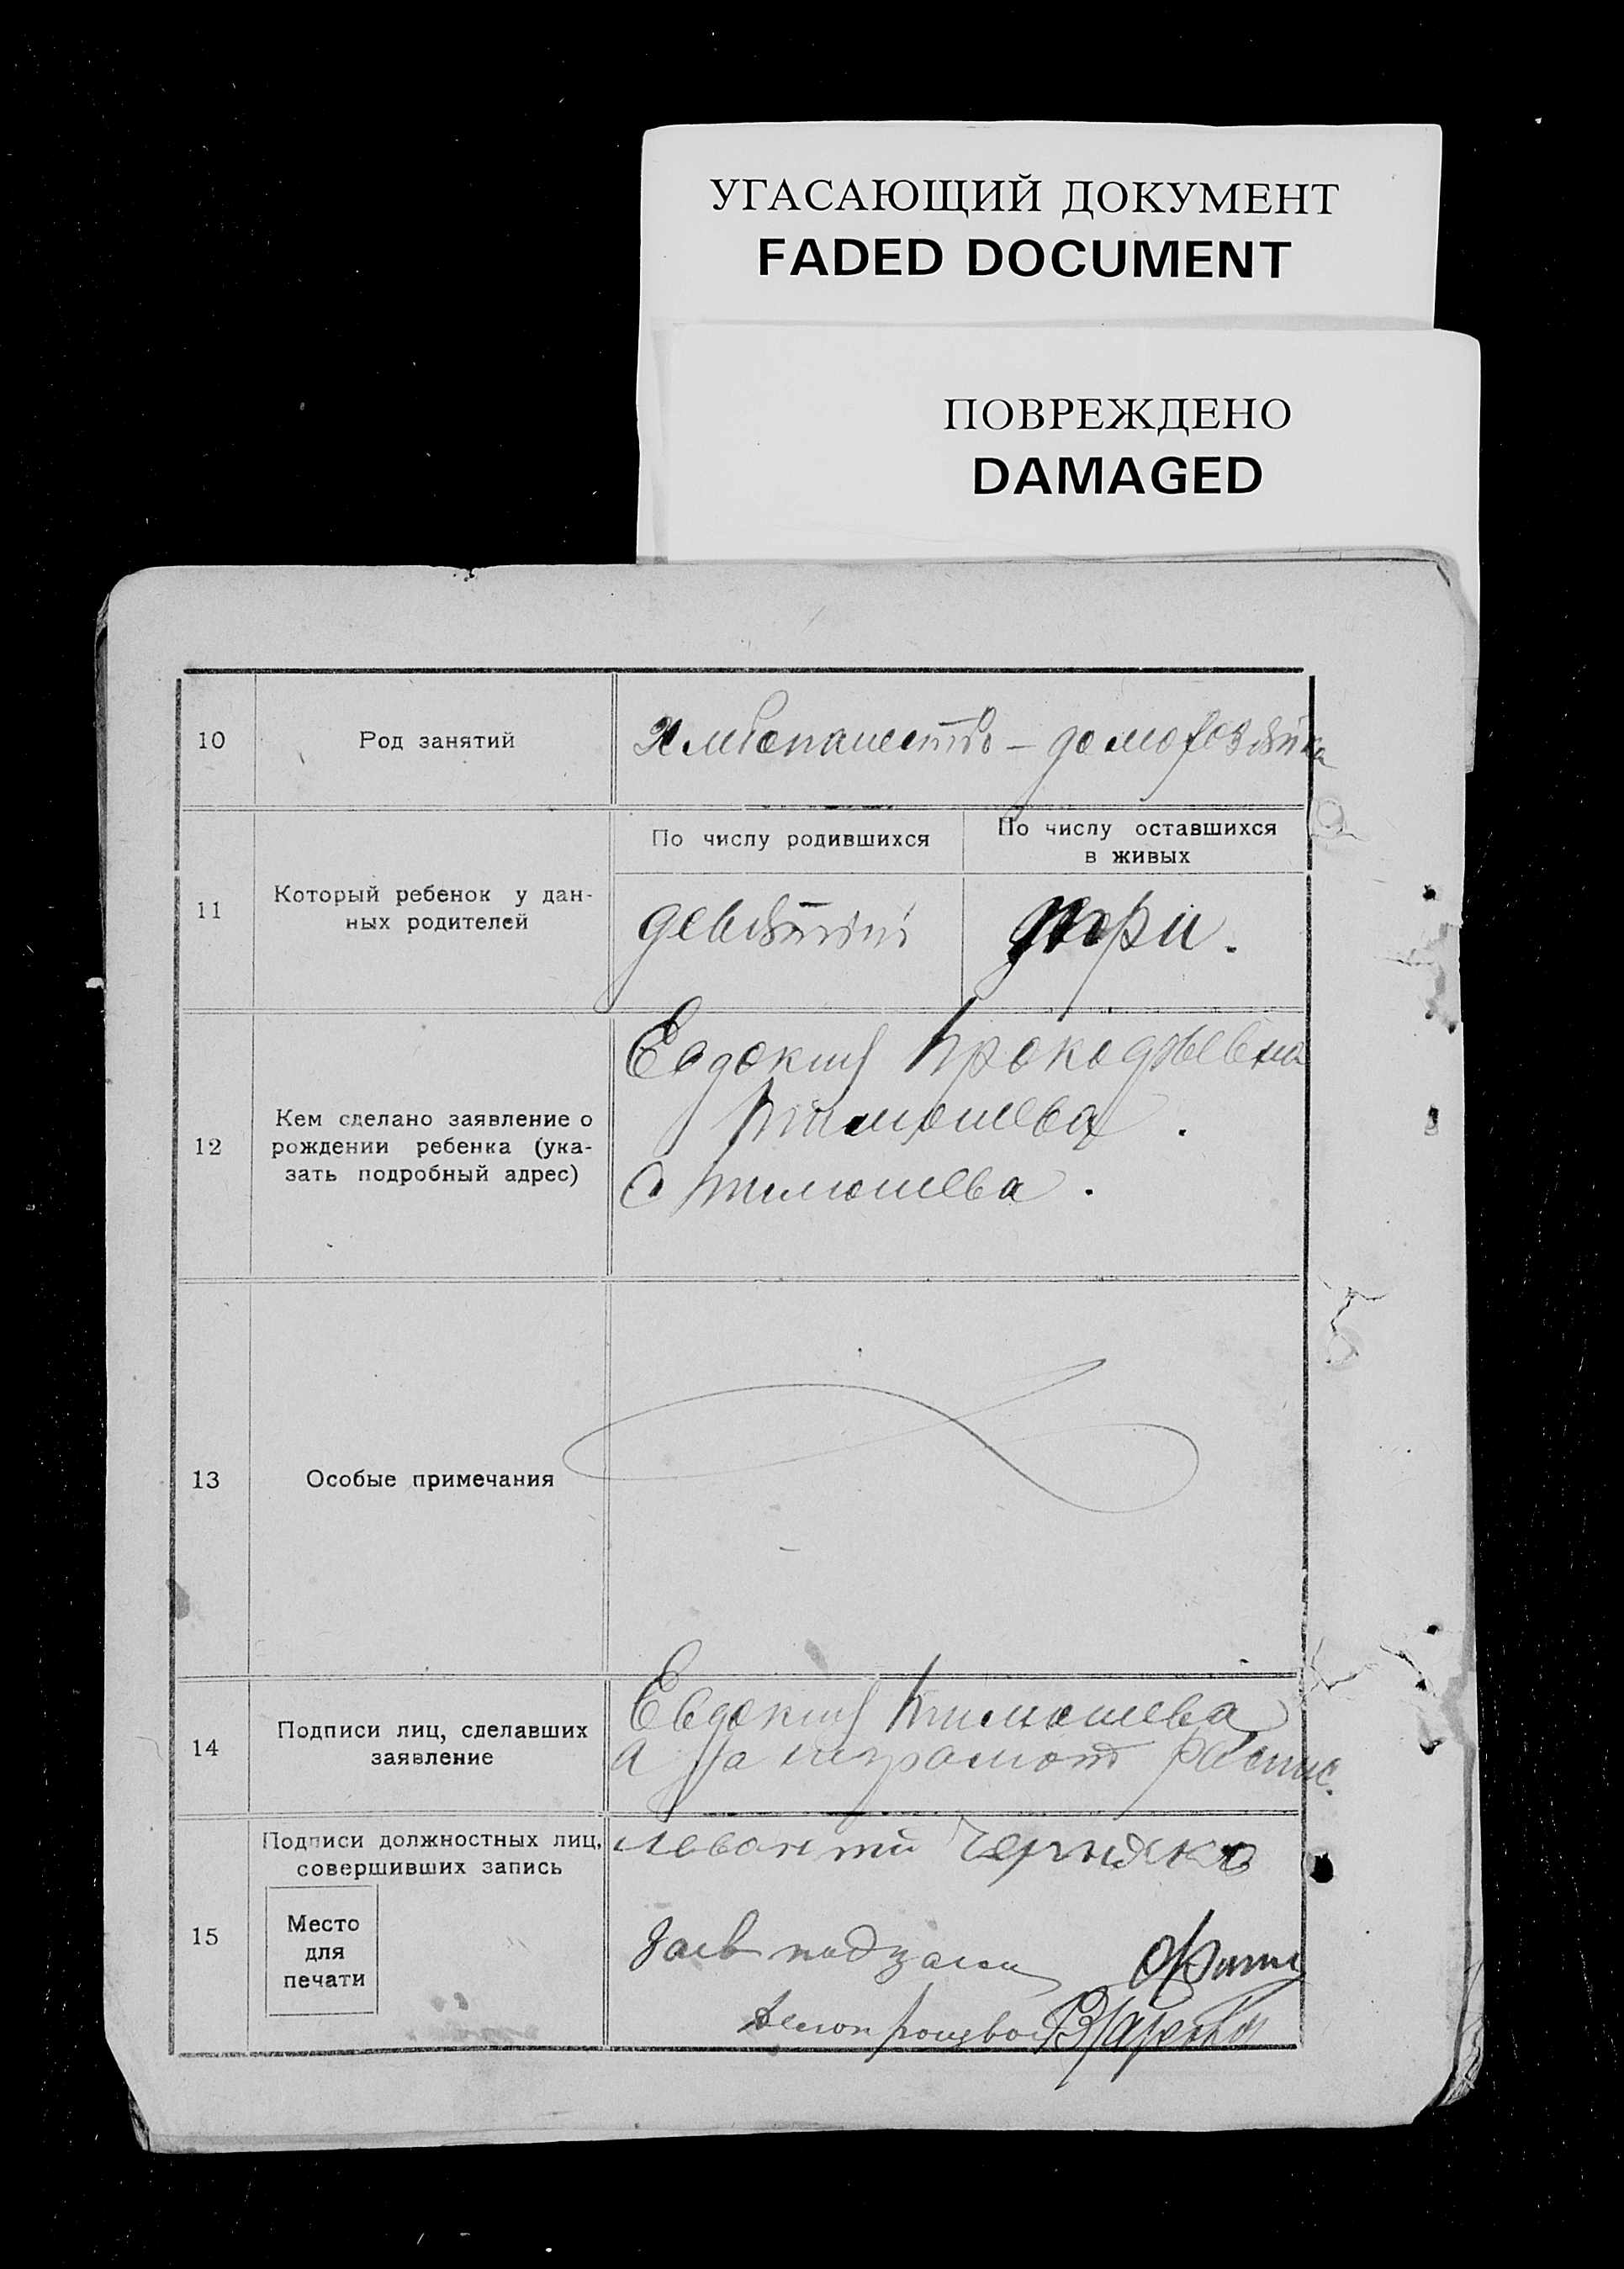 УГАСАЮЩИЙ ДОКУМЕНТ
FADED DOCUMENT
ПОВРЕЖДЕНО
DAMAGED
10
Род занятий
Хлебопашество – домохозяйка
11
Который ребенок у дан-
ных родителей
По числу родившихся
По числу оставшихся
в живых
девятый
три.
12
Кем сделано заявление о
рождении ребенка (ука-
зать подробный адрес)
Евдокия Прокофьевна
Тимошева.
С Тимошева.
13
Особые примечания
14
Подписи лиц, сделавших
заявление
Евдокия Тимошева
а за неграмот распис.
15
Подписи должностных лиц,
совершивших запись
Место
для
печати
Леонтий
Зав подзагса
Делопроизвод